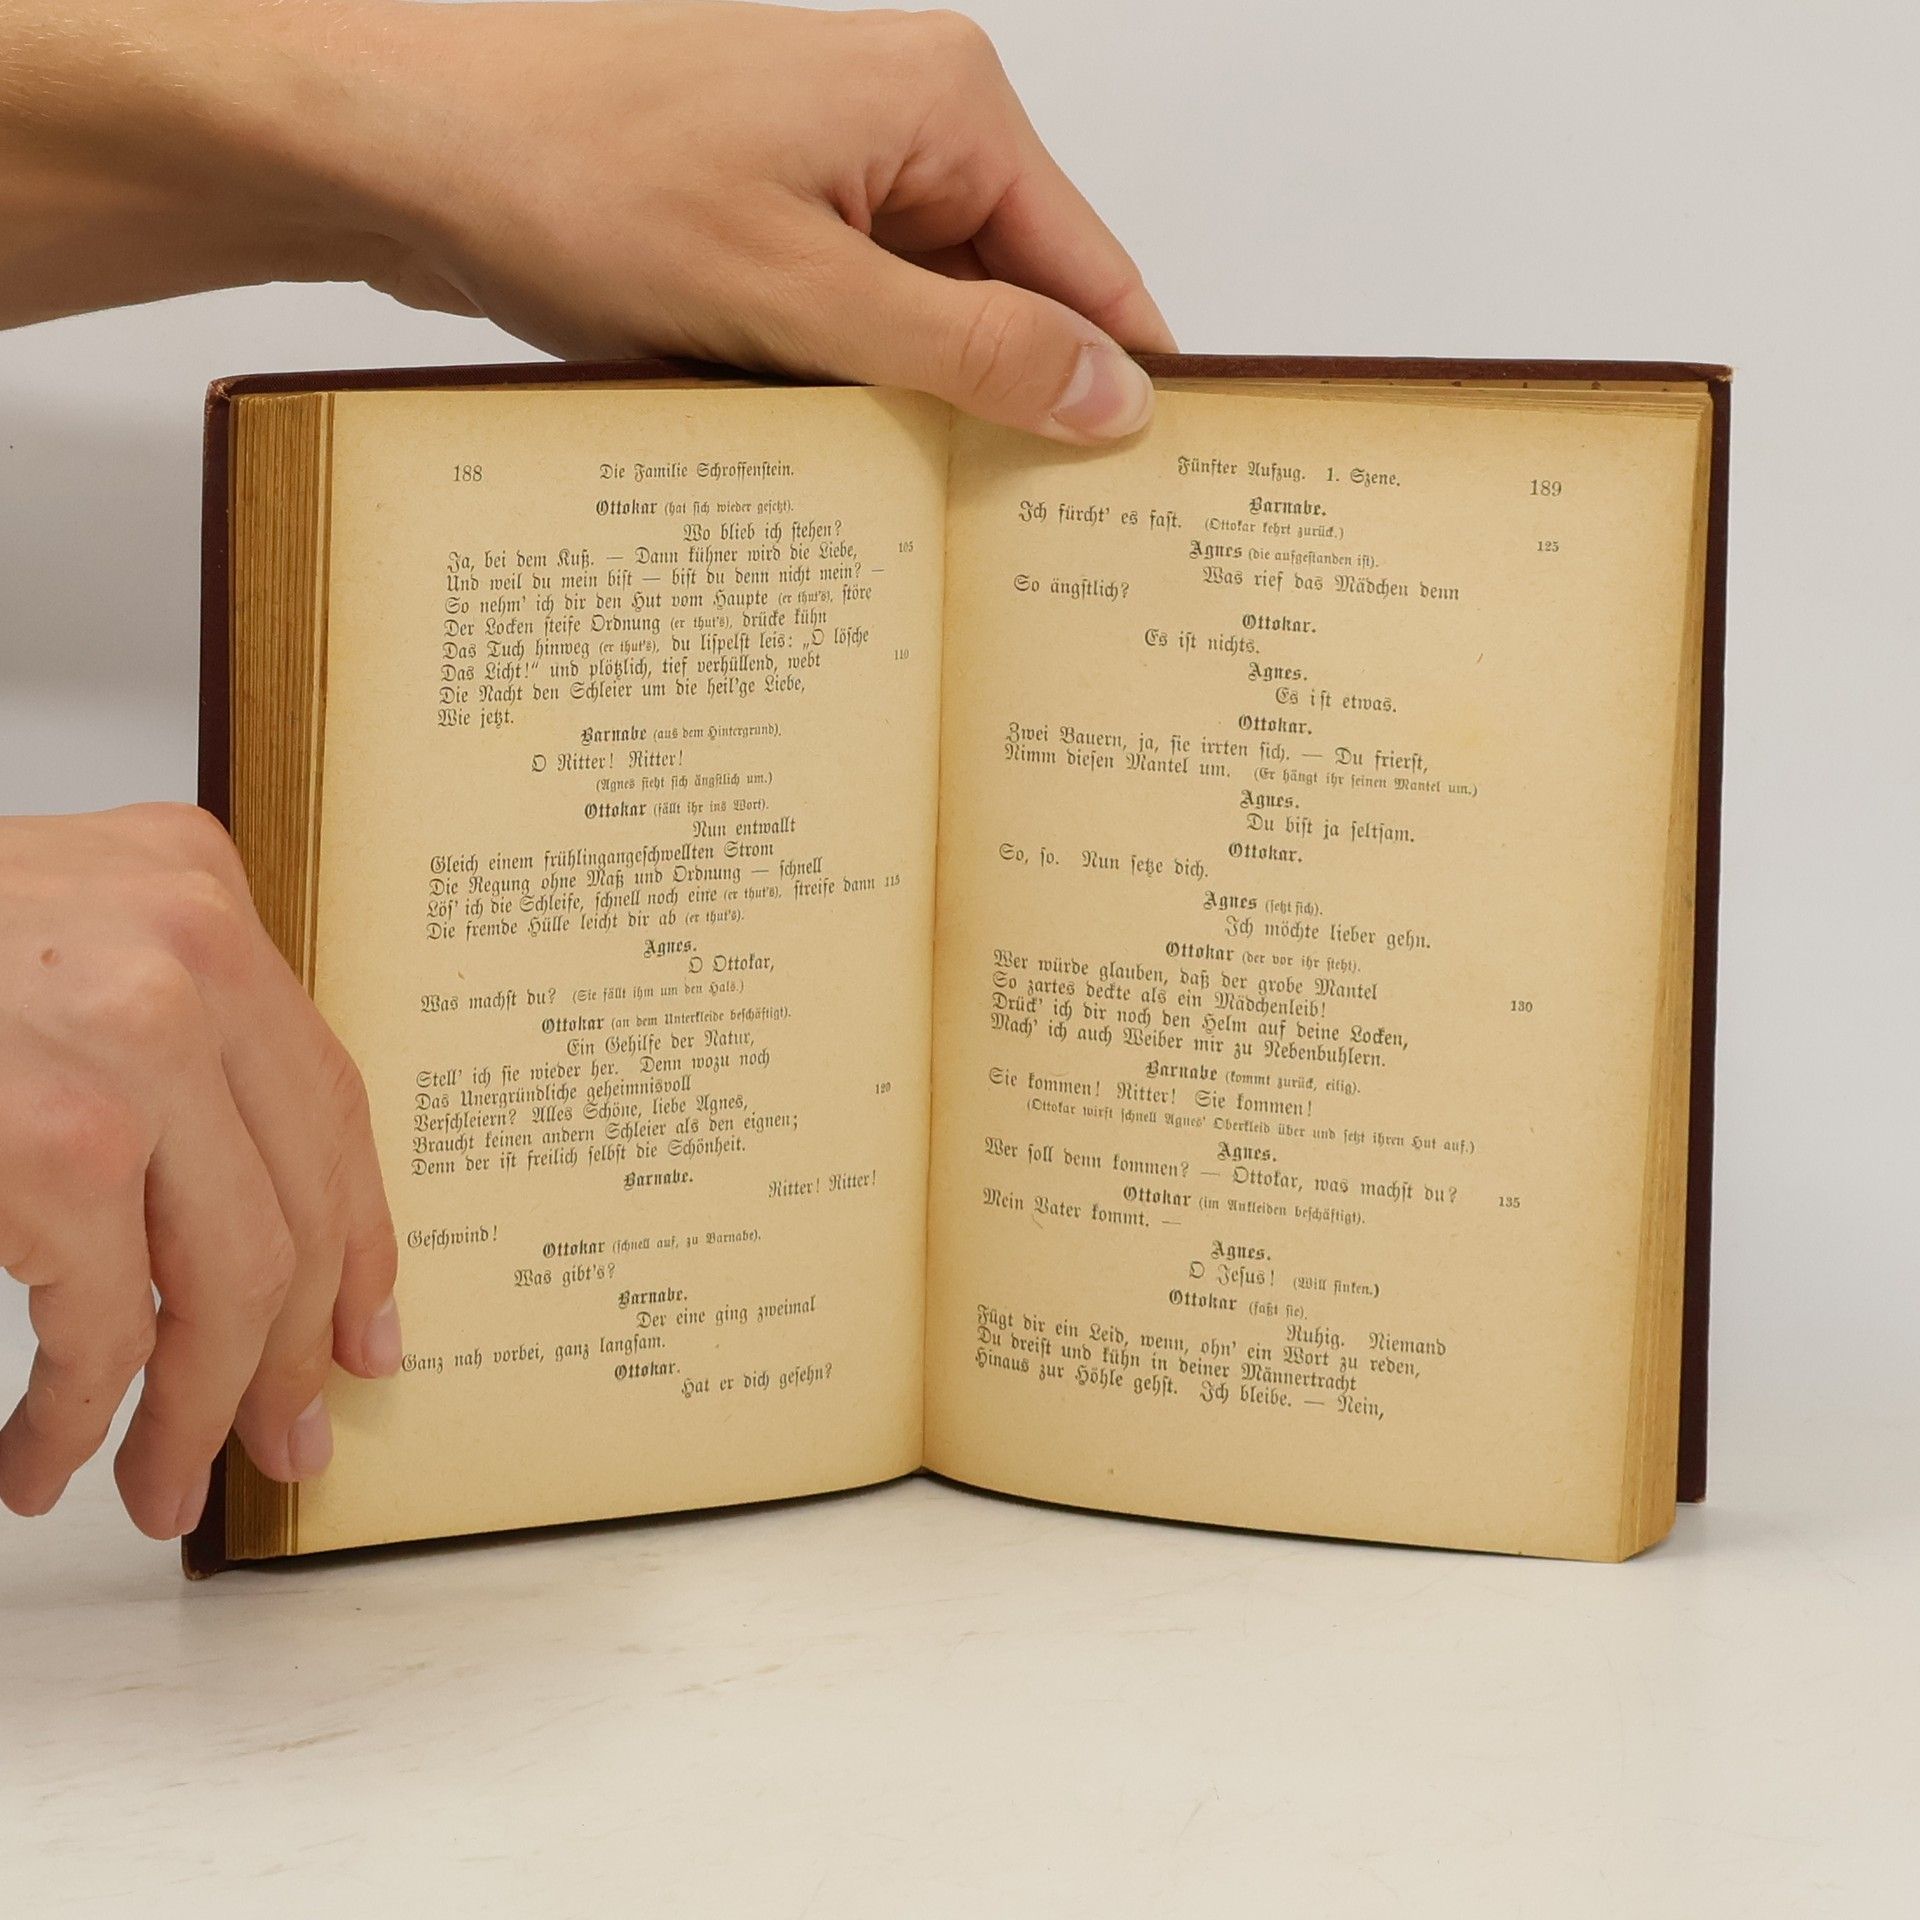 188 Die Familie Schroffenstein.
Ottokar (hat ſich wieder geſetzt).
Wo blieb ich ſtehen?
Ja, bei dem Kuß. — Dann kühner wird die Liebe, 105
Und weil du mein biſt — biſt du denn nicht mein? —
So nehm' ich dir den Hut vom Haupte (er thut's), ſtöre
Der Locken ſteife Ordnung (er thut's), drücke kühn
Das Tuch hinweg (er thut's), du liſpelſt leis: „O löſche
Das Licht!“ und plötzlich, tief verhüllend, webt 110
Die Nacht den Schleier um die heil'ge Liebe,
Wie jetzt.
Barnabe (aus dem Hintergrund).
O Ritter! Ritter!
(Agnes ſieht ſich ängſtlich um.)
Ottokar (fällt ihr ins Wort).
Nun entwallt
Gleich einem frühlingangeſchwellten Strom
Die Regung ohne Maß und Ordnung — ſchnell
Löſ' ich die Schleife, ſchnell noch eine (er thut's), ſtreife dann 115
Die fremde Hülle leicht dir ab (er thut's).
Agnes.
O Ottokar,
Was machſt du? (Sie fällt ihm um den Hals.)
Ottokar (an dem Unterkleide beſchäftigt).
Ein Gehilfe der Natur,
Stell' ich ſie wieder her. Denn wozu noch
Das Unergründliche geheimnisvoll 120
Verſchleiern? Alles Schöne, liebe Agnes,
Braucht keinen andern Schleier als den eignen;
Denn der iſt freilich ſelbſt die Schönheit.
Barnabe.
Ritter! Ritter!
Geſchwind!
Ottokar (ſchnell auf, zu Barnabe).
Was gibt's?
Barnabe.
Der eine ging zweimal
Ganz nah vorbei, ganz langſam.
Ottokar.
Hat er dich geſehn?
Fünfter Aufzug. 1. Szene. 189
Barnabe.
Ich fürcht' es faſt. (Ottokar kehrt zurück.) 125
Agnes (die aufgeſtanden iſt).
Was rief das Mädchen denn
So ängſtlich?
Ottokar.
Es iſt nichts.
Agnes.
Es iſt etwas.
Ottokar.
Zwei Bauern, ja, ſie irrten ſich. — Du frierſt,
Nimm dieſen Mantel um. (Er hängt ihr ſeinen Mantel um.)
Agnes.
Du biſt ja ſeltſam.
Ottokar.
So, ſo. Nun ſetze dich.
Agnes (ſetzt ſich).
Ich möchte lieber gehn.
Ottokar (der vor ihr ſteht).
Wer würde glauben, daß der grobe Mantel
So zartes deckte als ein Mädchenleib! 130
Drück' ich dir noch den Helm auf deine Locken,
Mach' ich auch Weiber mir zu Nebenbuhlern.
Barnabe (kommt zurück, eilig).
Sie kommen! Ritter! Sie kommen!
(Ottokar wirft ſchnell Agnes' Oberkleid über und ſetzt ihren Hut auf.)
Agnes.
Wer ſoll denn kommen? — Ottokar, was machſt du? 135
Ottokar (im Ankleiden beſchäftigt).
Mein Vater kommt. —
Agnes.
O Jeſus! (Will ſinken.)
Ottokar (faßt ſie).
Ruhig. Niemand
Fügt dir ein Leid, wenn, ohn' ein Wort zu reden,
Du dreiſt und kühn in deiner Männertracht
Hinaus zur Höhle gehſt. Ich bleibe. — Nein,